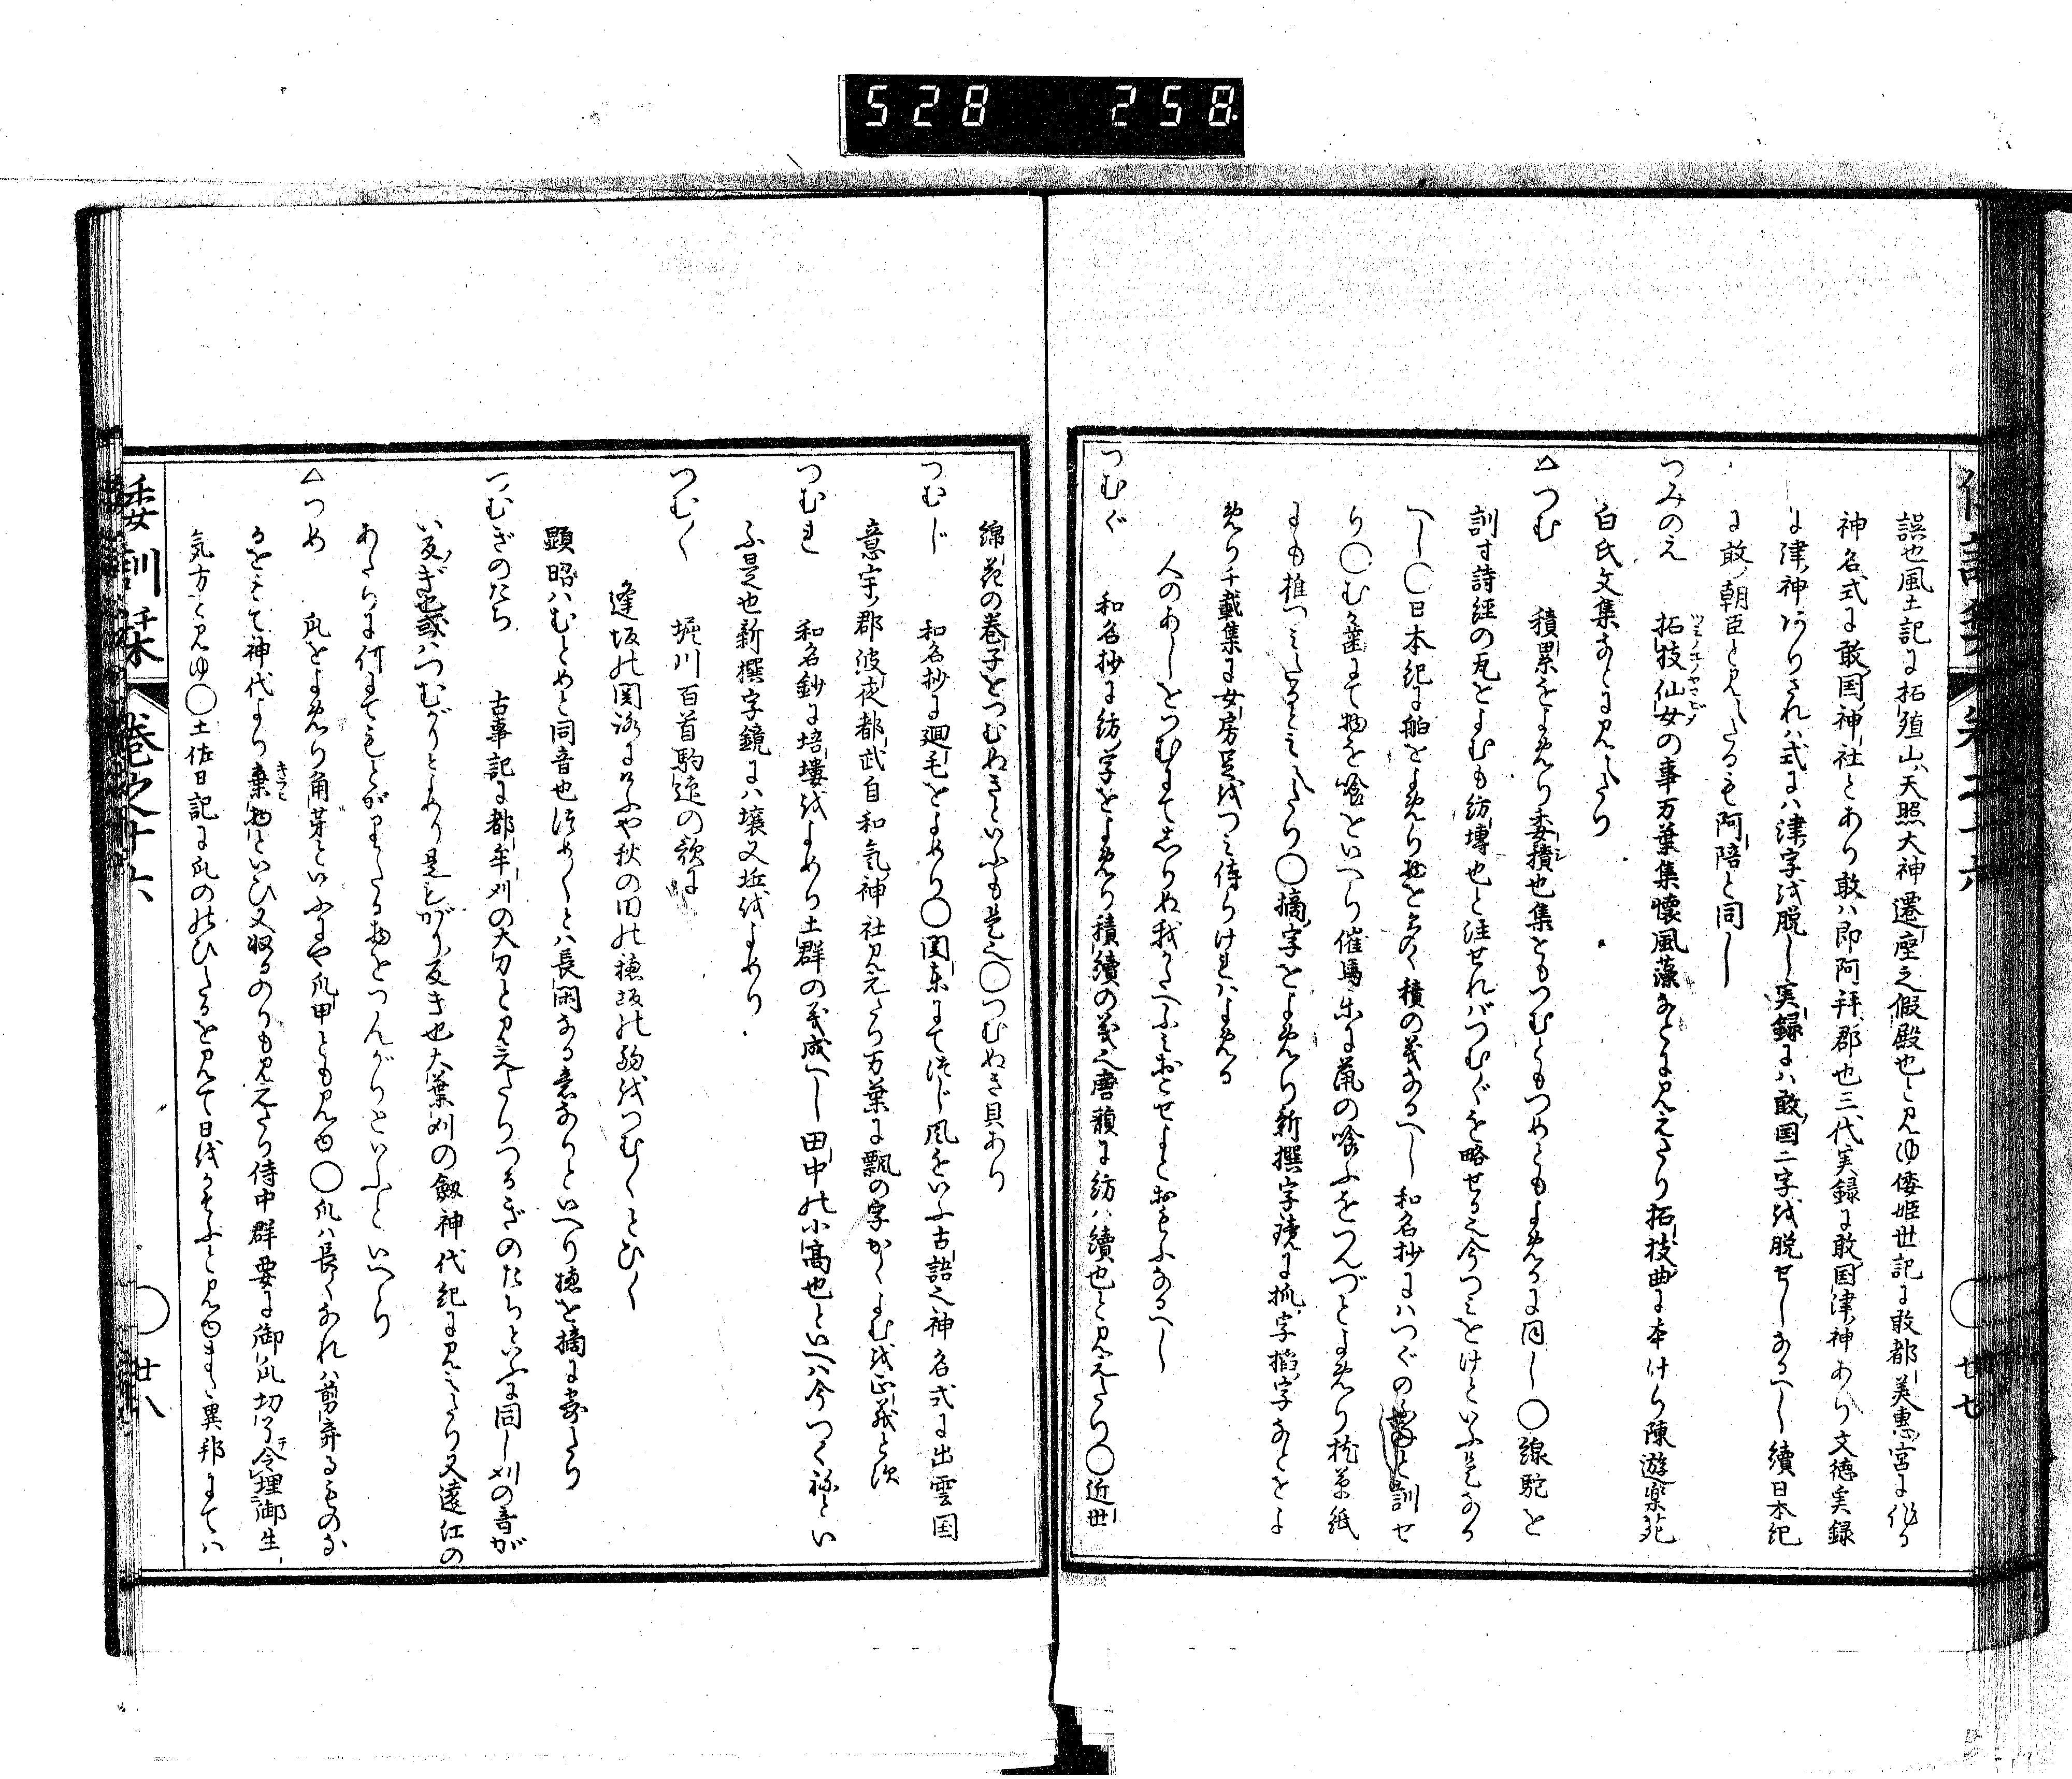 528 258
誤也風土記に拓殖山ハ天照大神遷座之假殿也と見ゆ倭姫世記に敢都美恵宮に作る
神名式に敢国神社とあり敢ハ即阿拜郡也三代実録に敢国津神あり文徳実録
に津神ありされハ式にハ津字を脱し実録にハ敢国二字を脱せしなるへし續日本紀
に敢朝臣と見えたるも阿陪と同し
つみのえ 拓枝仙女の事万葉集懐風藻なとに見えたり拓枝曲に本けり陳遊楽苑
白氏文集なとに見えたり
△つむ 積累をよめり委積也集ともつむともつめともよめるに同し〇線駝と
訓す詩經の瓦をよむも紡塼也と注せれバつむぐを略せる也今つミをけといふ是なる
へし〇日本紀に舶をよめり 積の義なるへし和名抄にハつぐの訓せ
り〇むる歯にて物を喰をいへり催馬楽に鼠の喰ふをつんづとよめり枕草紙
にも推つミたるといへり〇摘字をよめり新撰字鏡に抓字掐字なとをよ
めり千載集に女房足をつミ侍りけれハよめる
人のあしをつむにて志りぬ我かたへふミおこせよとおもふなるへし
つむぐ 和名抄に紡字をよめり積續の義也唐韻に紡ハ續也と見えたり〇近世
綿花の巻子をつむぬきといふも是也〇つむぬき貝あり
つむじ 和名抄に廻毛をよめり〇関東にてつじ風をいふ古語也神名式に出雲国
意宇郡波夜都武自和氣神社見えたり万葉に飄の字かくよむを正義とす
つむれ 和名鈔に培塿をよめり土群の義成へし田中の小高也といへハ今つく祢とい
ふ是也新撰字鏡にハ壌又垢をよめり
つむく 堀川百首駒迎の歌に
逢坂の関路にけふや秋の田の穂坂の駒をつむくとひく
顕昭ハむとめと同音也つめくとハ長閑なる意なりといへり穂を摘に寄たり
つむぎのたち 古事記に都牟刈の大刀と見えたりつるぎのたちといふに同し刈の音が
い反ぎ也或ハつむがりとよめり是もがり反き也大葉刈の劔神代紀に見えたり又遠江の
あたりに何にてもとがりたる物をつんがりといふといへり
△つめ 爪をよめり角芽といふにや爪甲とも見ゆ〇爪ハ長くなれハ剪弃るものな
るをもて神代より棄物といひ又祓るのりも見えたり侍中群要に御爪切了令埋御生
気方と見ゆ〇土佐日記に爪のゝひたるを見て日をかそふと見ゆまた異邦にてハ
倭訓栞 巻之廿六 廿八